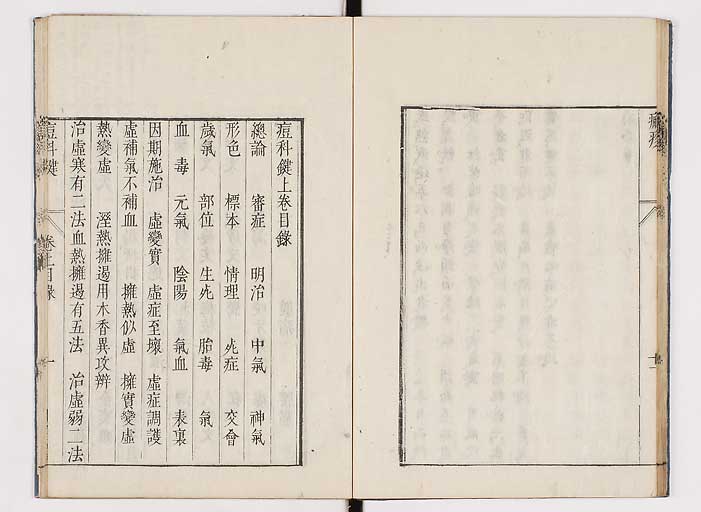 痘科鍵上卷目錄
總論 審症 明治 中氣 神氣
形色 標本 情理 兂症 交會
歲氣 部位 生兂 胎毒 氣
血 毒 元氣 陰陽 氣血 表裏
因期施治 虛變實 虛症至壞 虛症調護
虛補氣不補血 擁熱似虛 擁實變虛
熱變虛 溼熱擁遏用木香異攻辨
治虛寒有二法血熱擁遏有五法 治虛弱二法
痘科鍵 卷上目錄 一